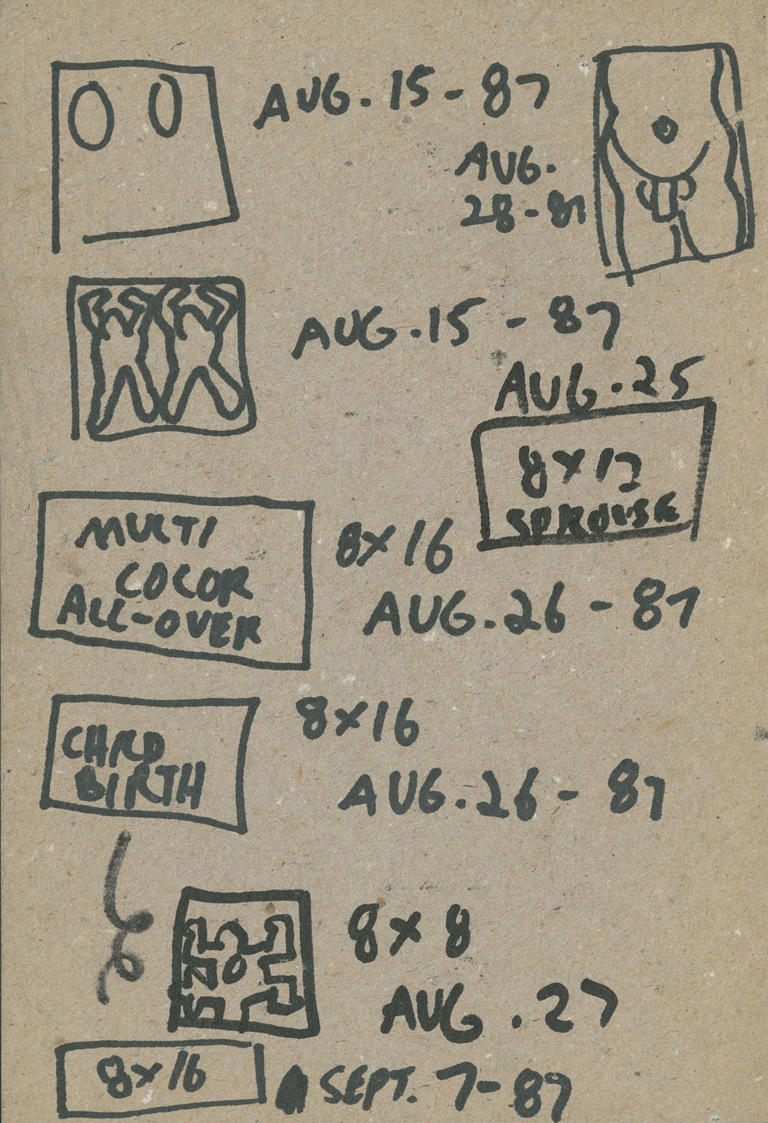 AUG. 15 - 87
AUG.
28 - 87
AUG. 15 - 87
AUG. 25
8 X 12
SPROUSE
MULTI
COLOR
ALL-OVER
8 X 16
AUG. 26 - 87
CHILD
BIRTH
8 X 16
AUG. 26 - 87
8 X 8
AUG. 27
8 X 16
SEPT. 7 - 87